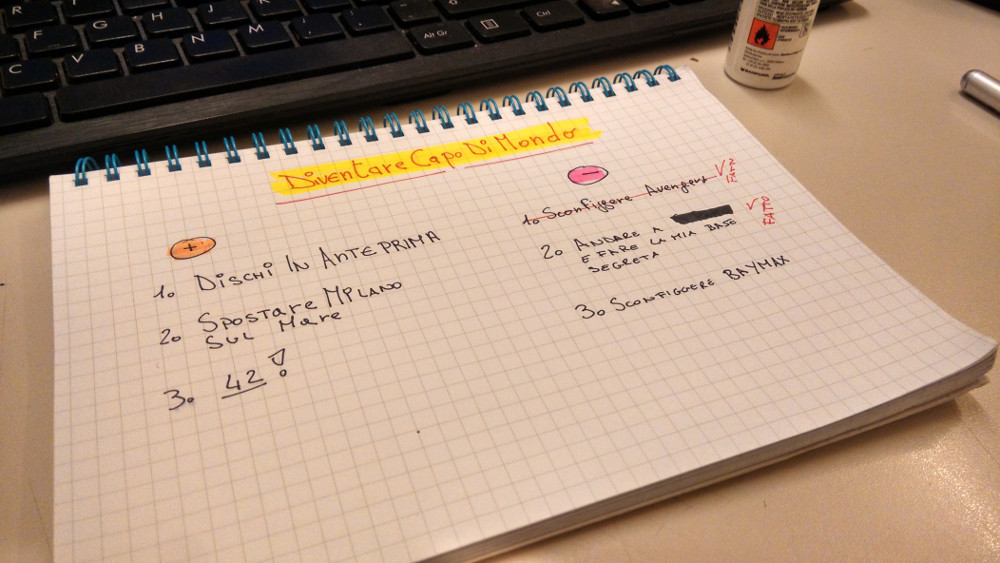 Diventare Capo Di Mondo
+
1. Dischi In Anteprima
2. Spostare Milano
sul Mare
3. 42!
-
1. Sconfiggere Avengers √ FATTO
2. Andare a
e fare la mia base
segreta
√ FATTO
3. Sconfiggere Baymax
R
F
G
H
J
K
L
C
V
B
N
M
Alt Gr
Ctrl